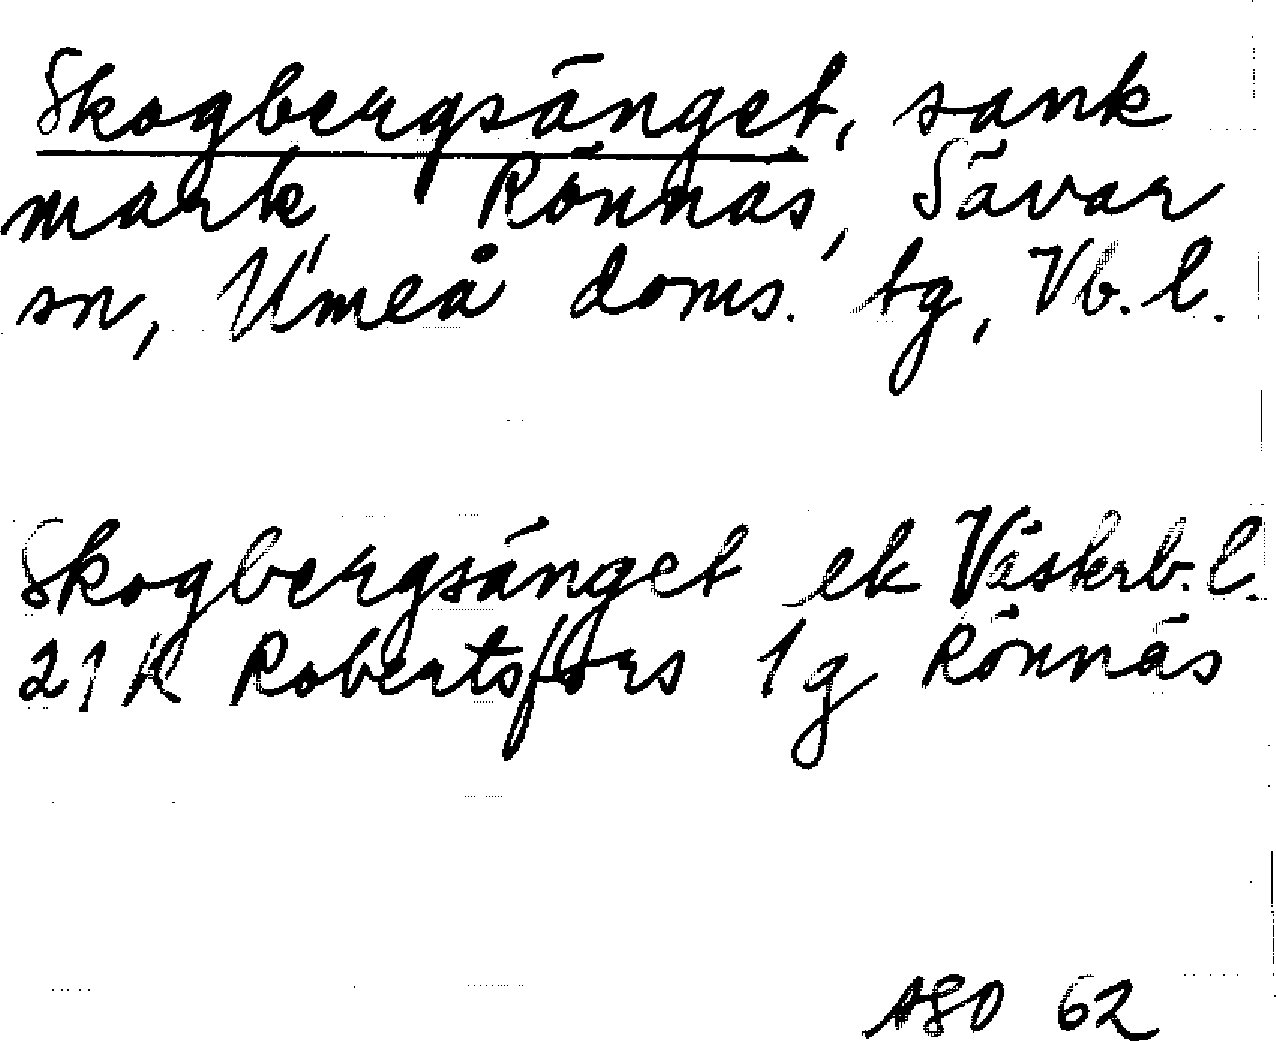 Skogbergsänget, sank
mark, Rönnäs, Sävar
sn, Umeå doms. tg, Vb. l.
Skogbergsänget ek Västerb. l.
21 K Robertsfors 1 g Rönnäs
ASO 62